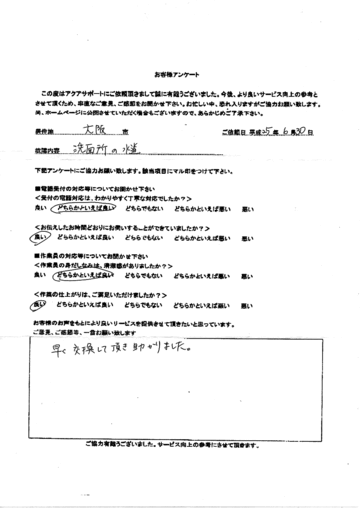 お客様アンケート
この度はアクアサポートにご依頼頂きまして誠に有難うございました。今後、より良いサービス向上の参考と
させて頂くため、率直なご意見、ご感想をお聞かせ下さい。お忙しい中、恐れ入りますがご協力お願い致します。
尚、ホームページに公開させていただく場合もございますので、あらかじめご了承下さい。
大阪 市 ご依頼日 平成25年6月30日
故障内容 洗面所の水道
下記アンケートにご協力お願い致します。該当項目にマル印をつけて下さい。
■電話受付の対応等についてお聞かせ下さい
＜受付の電話対応は、わかりやすく丁寧な対応でしたか？＞
良い どちらかといえば良い どちらでもない どちらかといえば悪い 悪い
＜お伝えしたお時間どおりにお伺いすることができていましたか？＞
良い どちらかといえば良い どちらでもない どちらかといえば悪い 悪い
■作業員の対応等についてお聞かせ下さい
＜作業員の身だしなみは、清潔感がありましたか？＞
良い どちらかといえば良い どちらでもない どちらかといえば悪い 悪い
＜作業の仕上がりは、ご満足いただけましたか？＞
良い どちらかといえば良い どちらでもない どちらかといえば悪い 悪い
お客様のお声をもとにより良いサービスを提供させて頂きたいと思っています。
ご意見、ご感想等、一言お願い致します
早く交換して頂き助かりました。
ご協力有難うございました。サービス向上の参考にさせて頂きます。